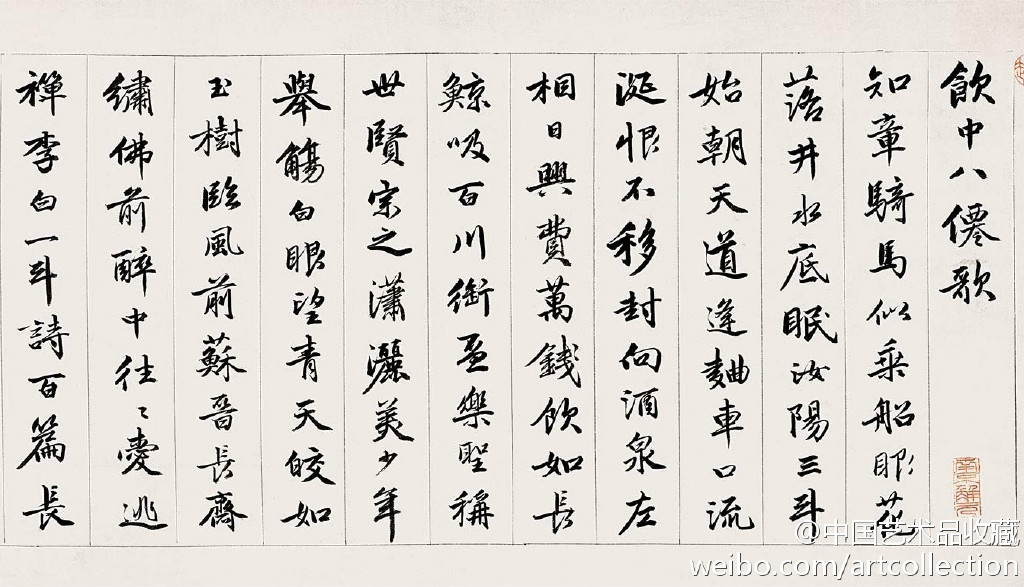 飲中八僊歌
知章騎馬似乘船眼花
落井水底眠汝陽三斗
始朝天道逢麯車口流
涎恨不移封向酒泉左
相日興費萬錢飲如長
鯨吸百川銜盃樂聖稱
世賢宗之瀟灑美少年
舉觴白眼望青天皎如
玉樹臨風前蘇晉長齋
繡佛前醉中往〻愛逃
禪李白一斗詩百篇長
@中国艺术品收藏
weibo.com/artcollection